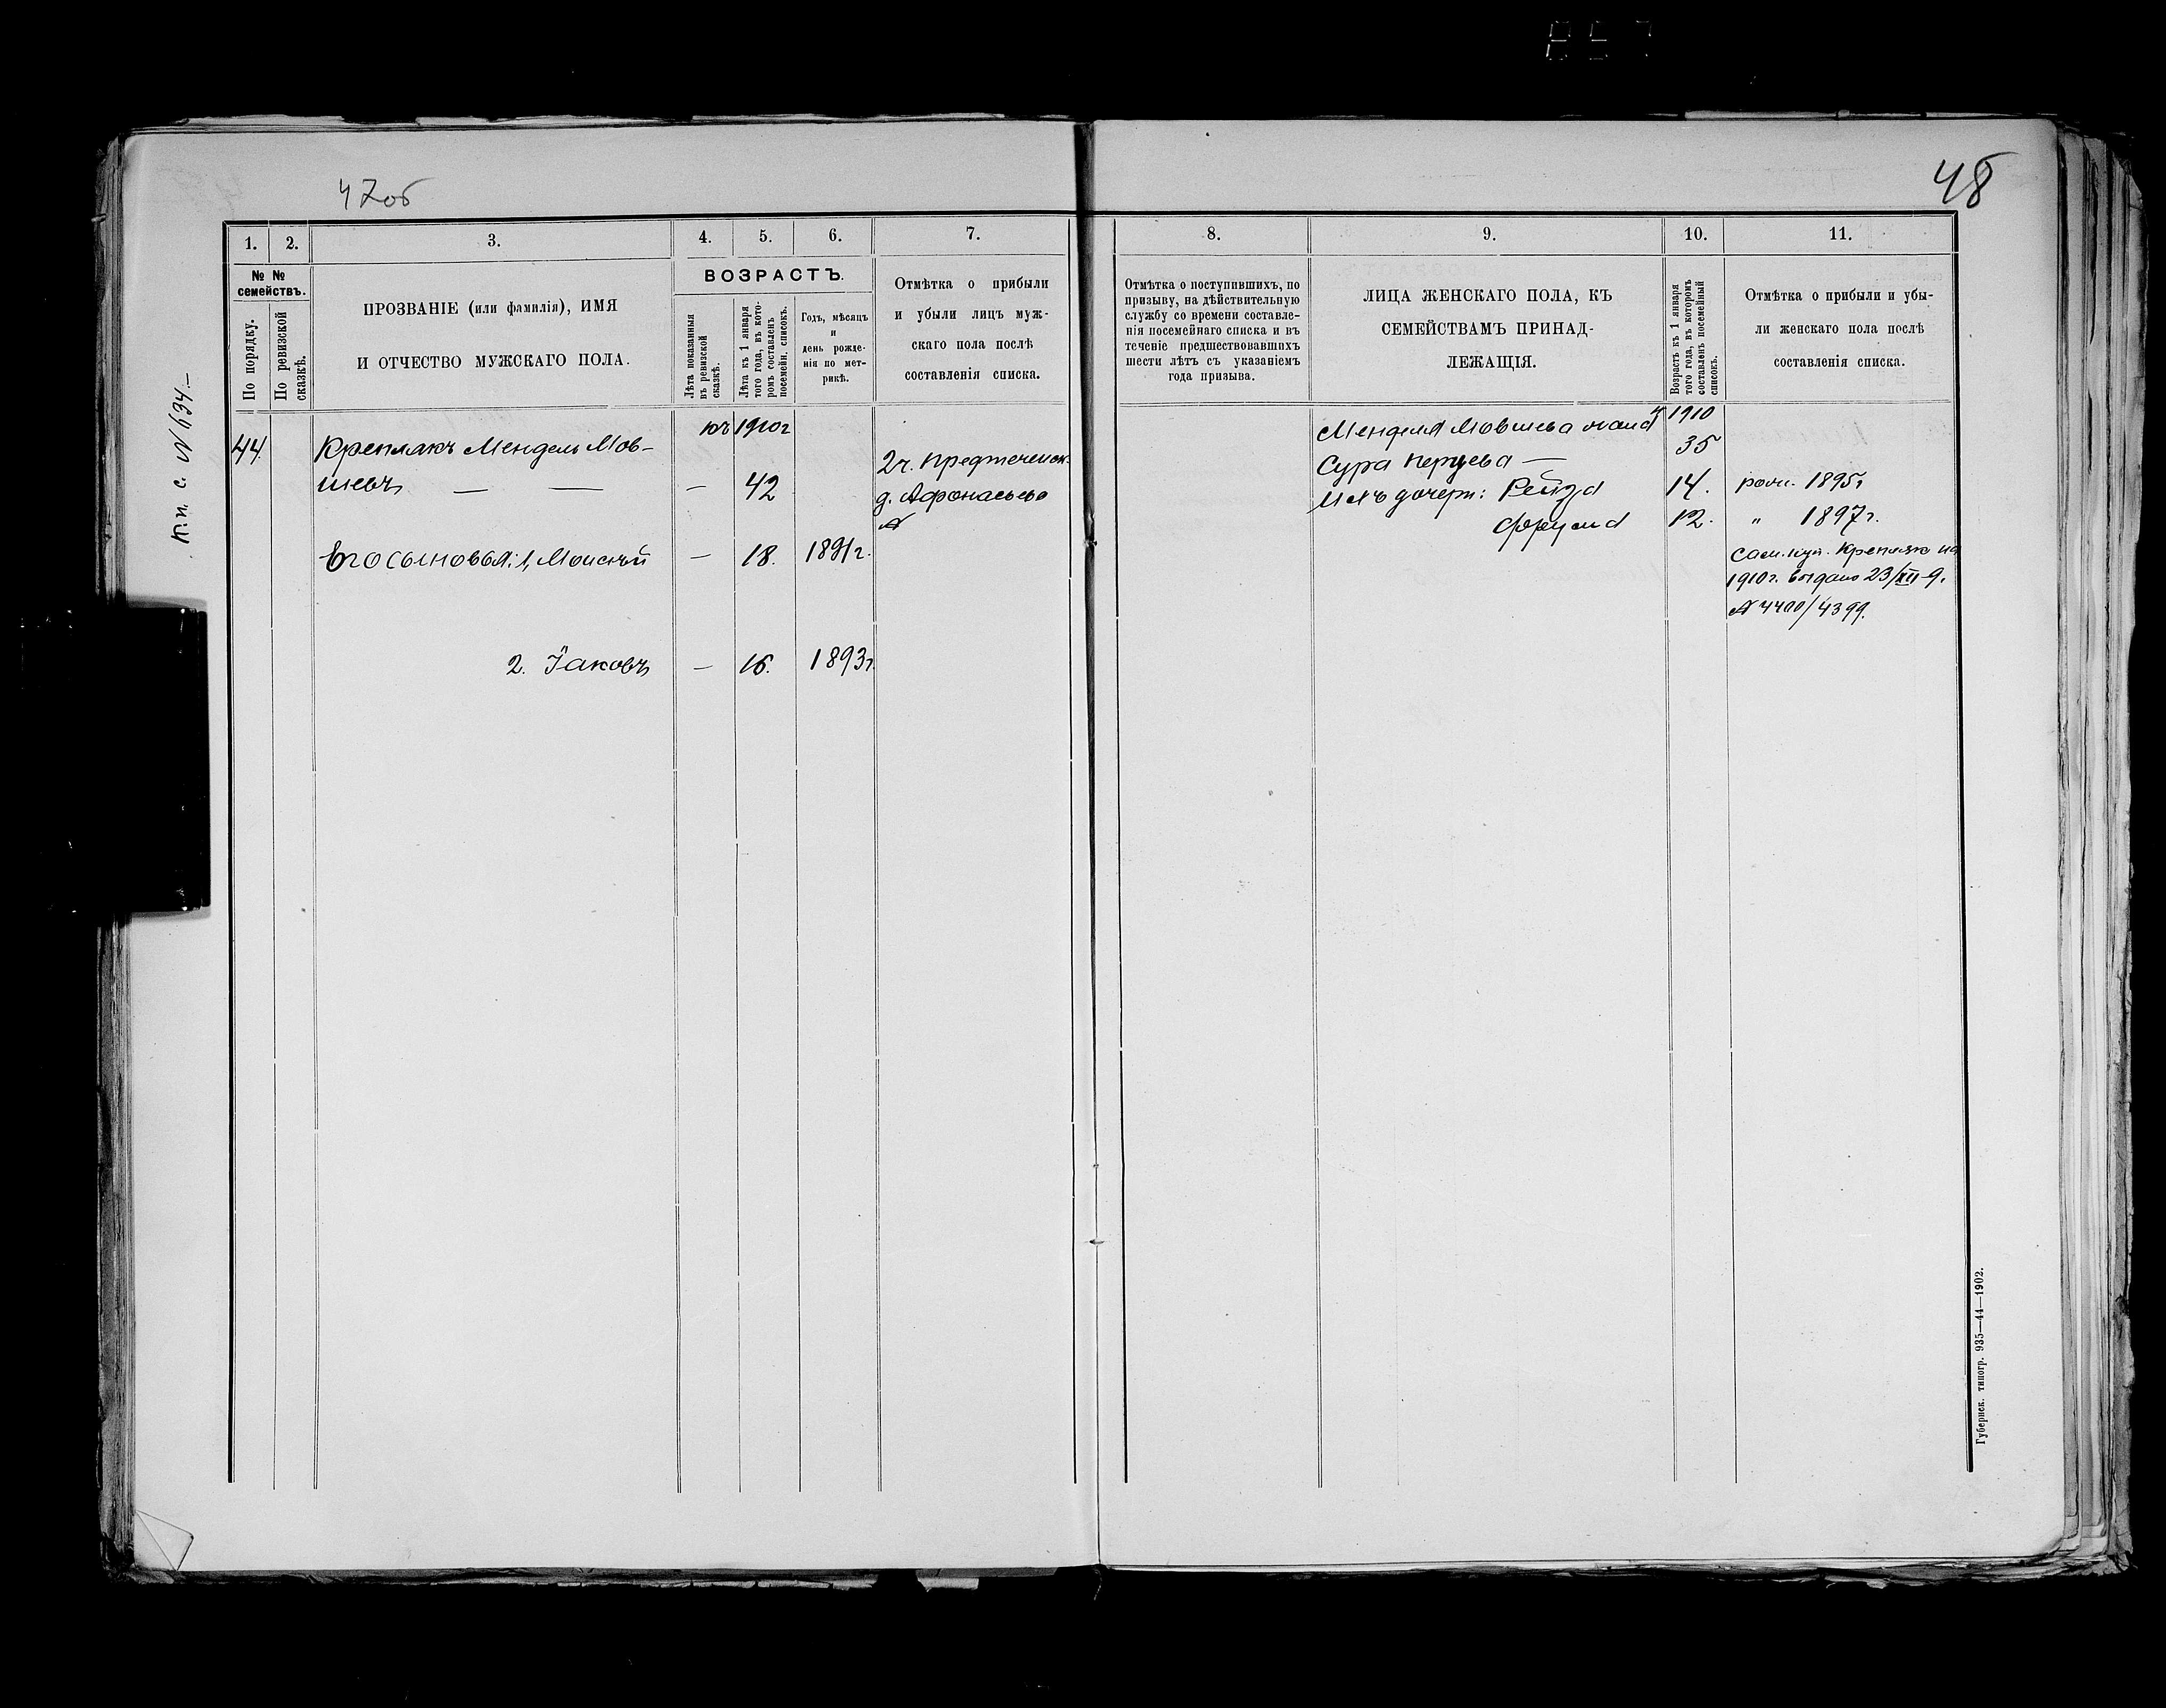 47об
1. 2. 3. 4. 5. 6. 7.
№ №
семействъ.
По порядку.
По ревизской
сказкѣ.
ПРОЗВАНІЕ (или фамилія), ИМЯ
И ОТЧЕСТВО МУЖСКАГО ПОЛА.
ВОЗРАСТЪ.
Лѣта показанныя
въ ревизской
сказкѣ.
Лѣта къ 1 января
того года, въ кото-
ромъ составленъ
посемейн. списокъ.
Годъ, мѣсяцъ
и
день рожде-
нія по мет-
рикѣ.
Отмѣтка о прибыли
и убыли лицъ муж-
скаго пола послѣ
составленія списка.
К. п. с. № 634.—
къ 1910г
44. Креплякъ Мендель Мов-
шевъ — — — 42
2ч. Предтеченск.
д. Афонасьева
№
Его сыновья: 1, Моисѣй — 18. 1891г.
2. Іаковъ — 16. 1893г.
48
8. 9. 10. 11.
Отмѣтка о поступившихъ, по
призыву, на дѣйствительную
службу со времени составле-
нія посемейнаго списка и въ
теченіе предшествовавшихъ
шести лѣтъ съ указаніемъ
года призыва.
ЛИЦА ЖЕНСКАГО ПОЛА, КЪ
СЕМЕЙСТВАМЪ ПРИНАД-
ЛЕЖАЩІЯ.
Возрастъ къ 1 января
того года, въ которомъ
составленъ посемейный
списокъ.
Отмѣтка о прибыли и убы-
ли женскаго пола послѣ
составленія списка.
Менделя Мовшева жена 1910
Сура Перцева — 35
Ихъ дочери: Рейза 14. 1895г
Фрума 12. " 1897г.
Креплякъ на
1910г. выдано 23/XII-9.
№ 4400/4399.
Губернск. типогр. 935—44—1902.